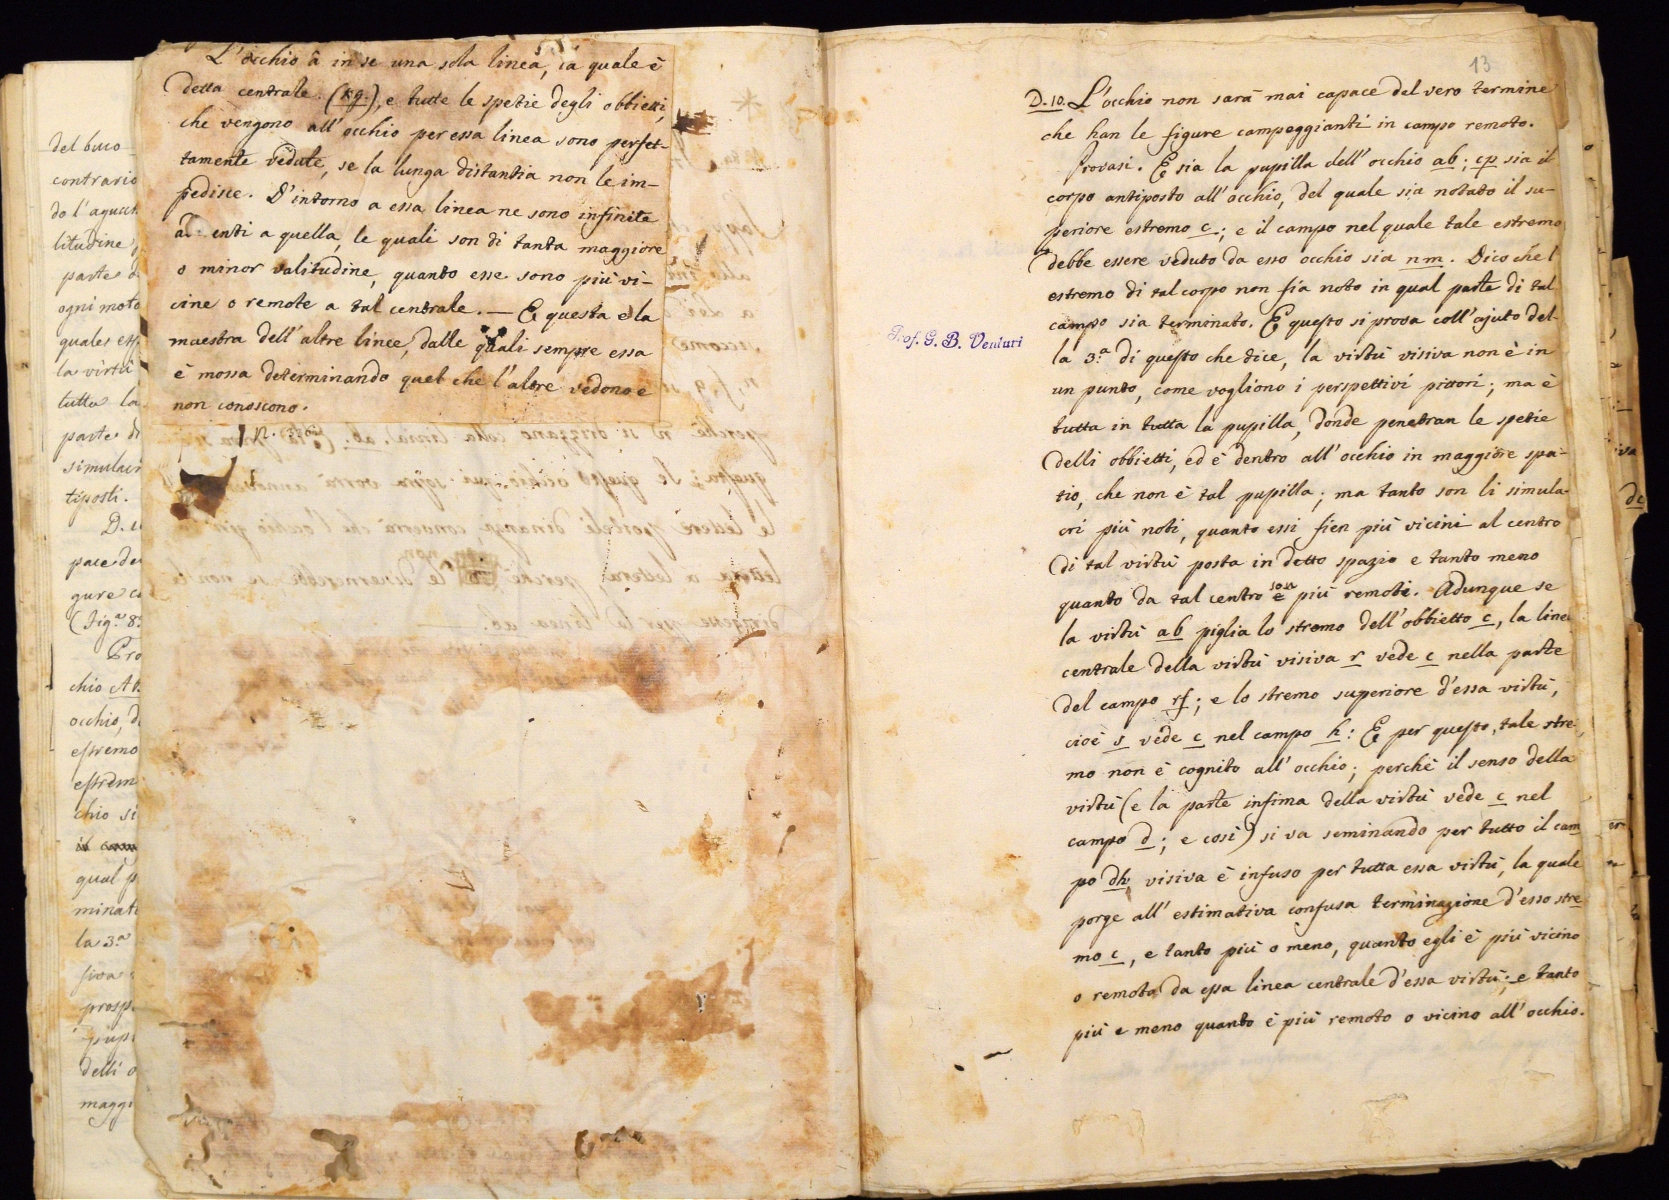 del buco
contrario
do l'aguccia
litudine,
parte d
ogni moto
quale ess
la virtù
tutta la
parte di
simulacr
tiposti.
D. 1
pace de
gure c
(Fig.ª 8.
Pro
chio AB
occhio, d
estremo
estrem
chio si
qual p
minat
la 3.ª
siva
prosp
pup
delli o
maggi
L'occhio à in se una sola linea, la quale è
detta centrale. (rq.), e tutte le spetie degli obbietti,
che vengono all'occhio per essa linea sono perfet-
tamente vedute, se la lunga distantia non le im-
pedisce. D'intorno a essa linea ne sono infinite
enti a quella, le quali son di tanta maggiore
o minor valitudine, quanto esse sono più vi-
cine o remote a tal centrale. — E questa è la
maestra dell'altre linee, dalle quali sempre essa
è mossa determinando quel che l'altre vedono e
non conoscono.
Prof. G. B. Venturi
13
D. 10. L'occhio non sarà mai capace del vero termine
che han le figure campeggianti in campo remoto.
Provasi. E sia la pupilla dell'occhio ab; cp sia il
corpo antiposto all'occhio, del quale sia notato il su-
periore estremo c.; e il campo nel quale tale estremo
debbe essere veduto da esso occhio sia nm. Dico che l
estremo di tal corpo non fia noto in qual parte di tal
campo sia terminato. E questo si prova coll'ajuto del-
la 3.ª di questo che dice, la virtù visiva non è in
un punto, come vogliono i perspettivi pittori; ma è
tutta in tutta la pupilla, donde penetran le spetie
delli obbietti, ed è dentro all'occhio in maggiore spa-
tio, che non è tal pupilla; ma tanto son li simula-
cri più noti, quanto essi sien più vicini al centro
di tal virtù posta in detto spazio e tanto meno
quanto da tal centro son più remoti. Adunque se
la virtù ab piglia lo stremo dell'obbietto c, la linea
centrale della virtù visiva r vede c nella parte
del campo rf; e lo stremo superiore d'essa virtù,
cioè s vede c nel campo h: E per questo, tale stre-
mo non è cognito all'occhio; perchè il senso della
virtù (e la parte infima della virtù vede c nel
campo d; e così) si va seminando per tutto il cam
po dh visiva è infuso per tutta essa virtù, la quale
porge all'estimativa confusa terminazione d'esso stre-
mo c, e tanto più o meno, quanto egli è più vicino
o remoto da essa linea centrale d'essa virtù; e tanto
più e meno quanto è più remoto o vicino all'occhio.